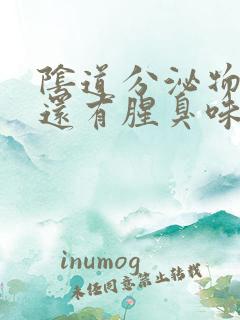 陰道分泌物
還有腥臭味
inumog
未经同意禁止转载